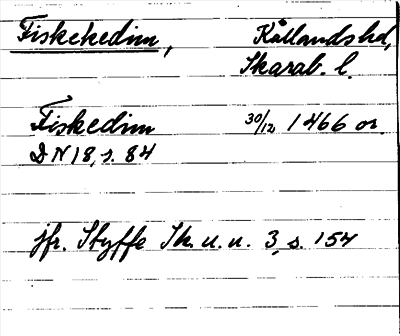 Fiskekedim, Kållands hd,
Skarab. l.
Fiskedim 30/12 1466 or.
DN 18, s. 84
jfr. Styffe Sk. u. u. 3, s. 154